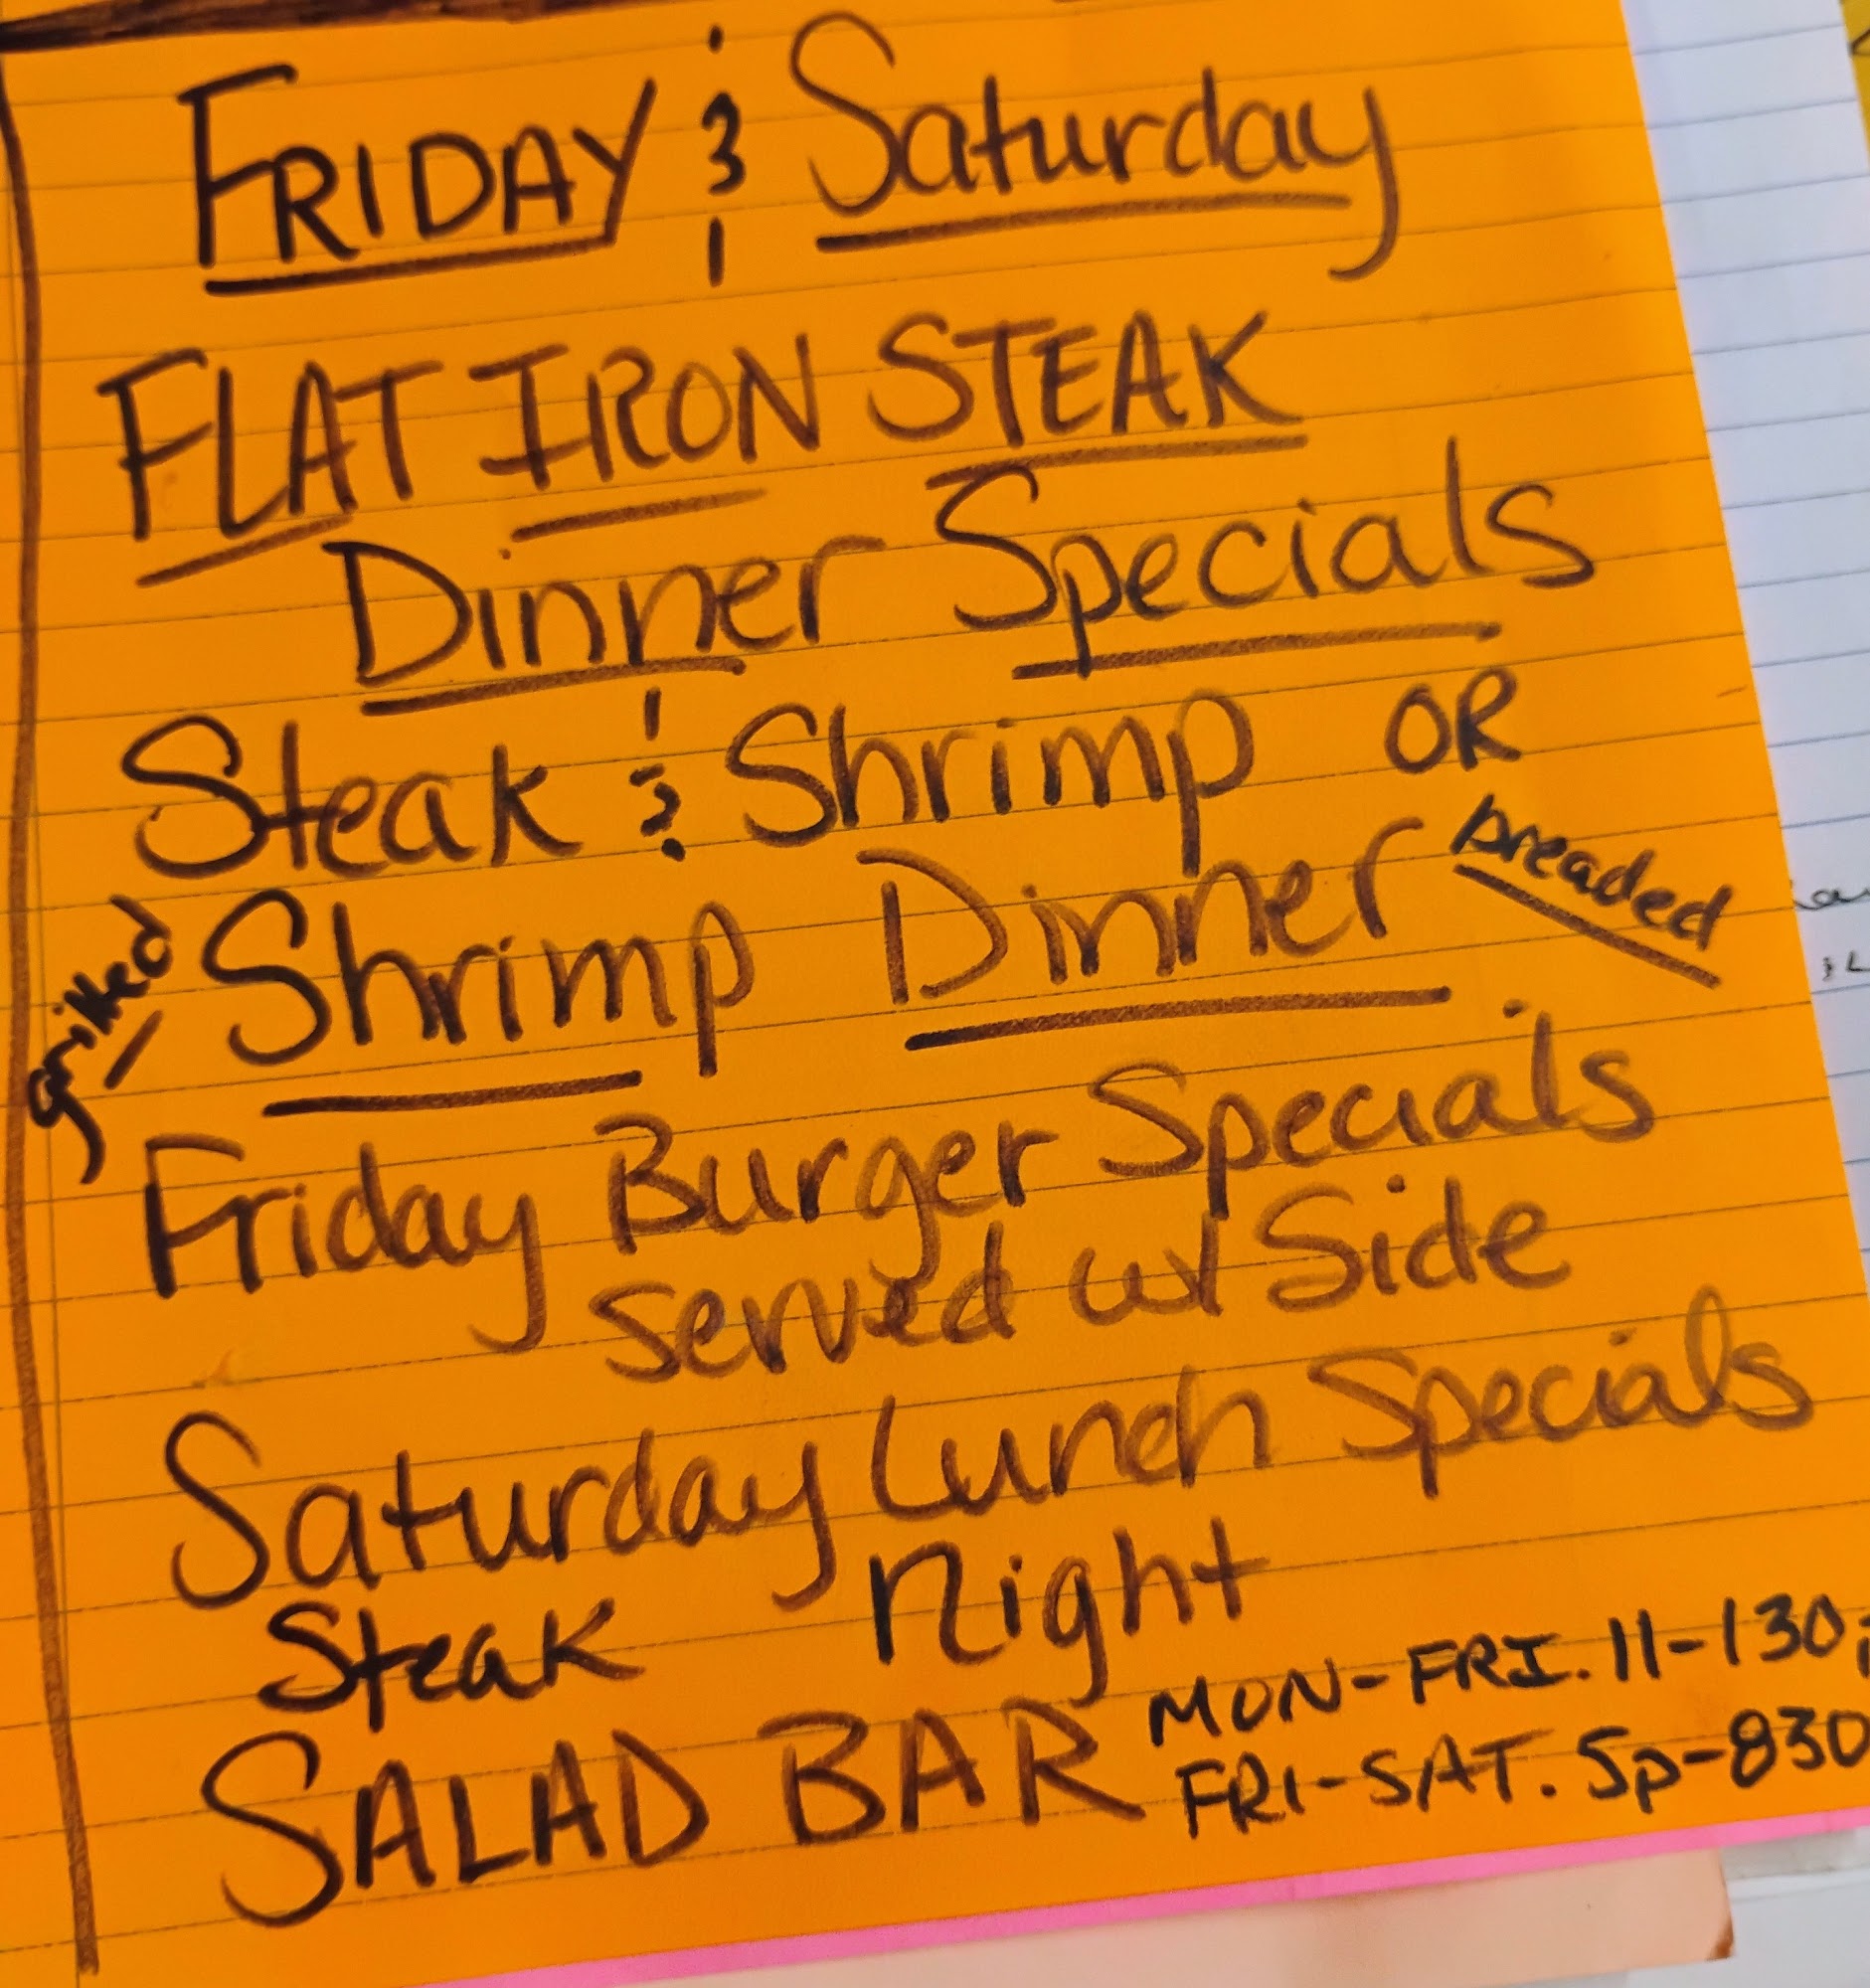 FRIDAY & Saturday
FLAT IRON STEAK
Dinner Specials
Steak & Shrimp OR
grilled Shrimp Dinner breaded
Friday Burger Specials
served w/ Side
Saturday Lunch Specials
Steak Night
SALAD BAR
MON-FRI. 11-130
FRI-SAT. 5p-830